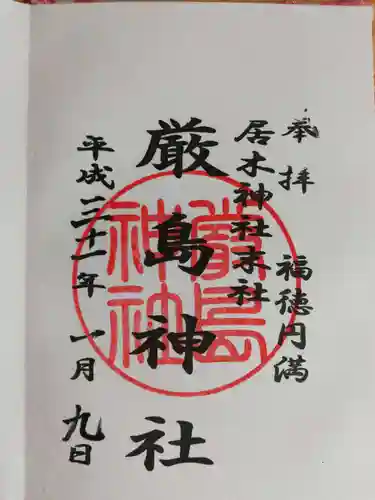 奉拝 福徳円満
居木神社末社
厳島神社
平成三十一年 一月 九日
嚴島
神社